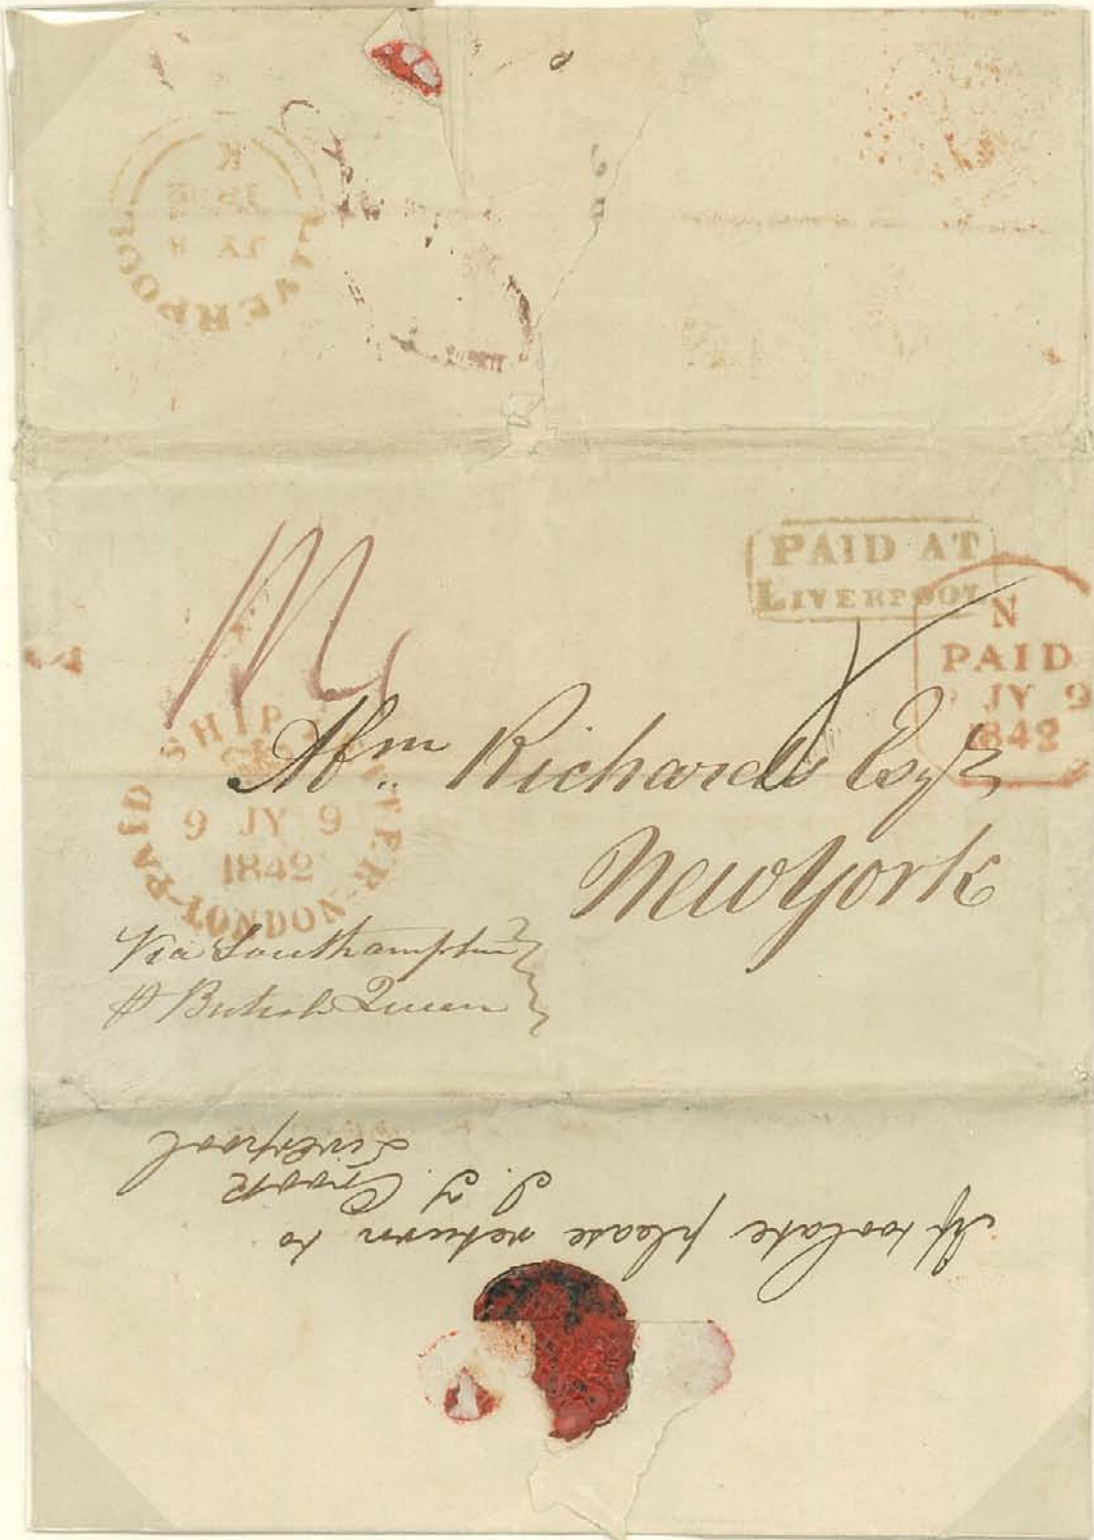 LIVERPOOL
JY 8
K
PAID AT
LIVERPOOL
N
PAID
JY 9
1842
SHIP LETTER
9 JY 9
1842
PAID LONDON
Abm Richards Esqr
New York
Via Southampton
P British Queen
If too late please return to
Crook
Liverpool